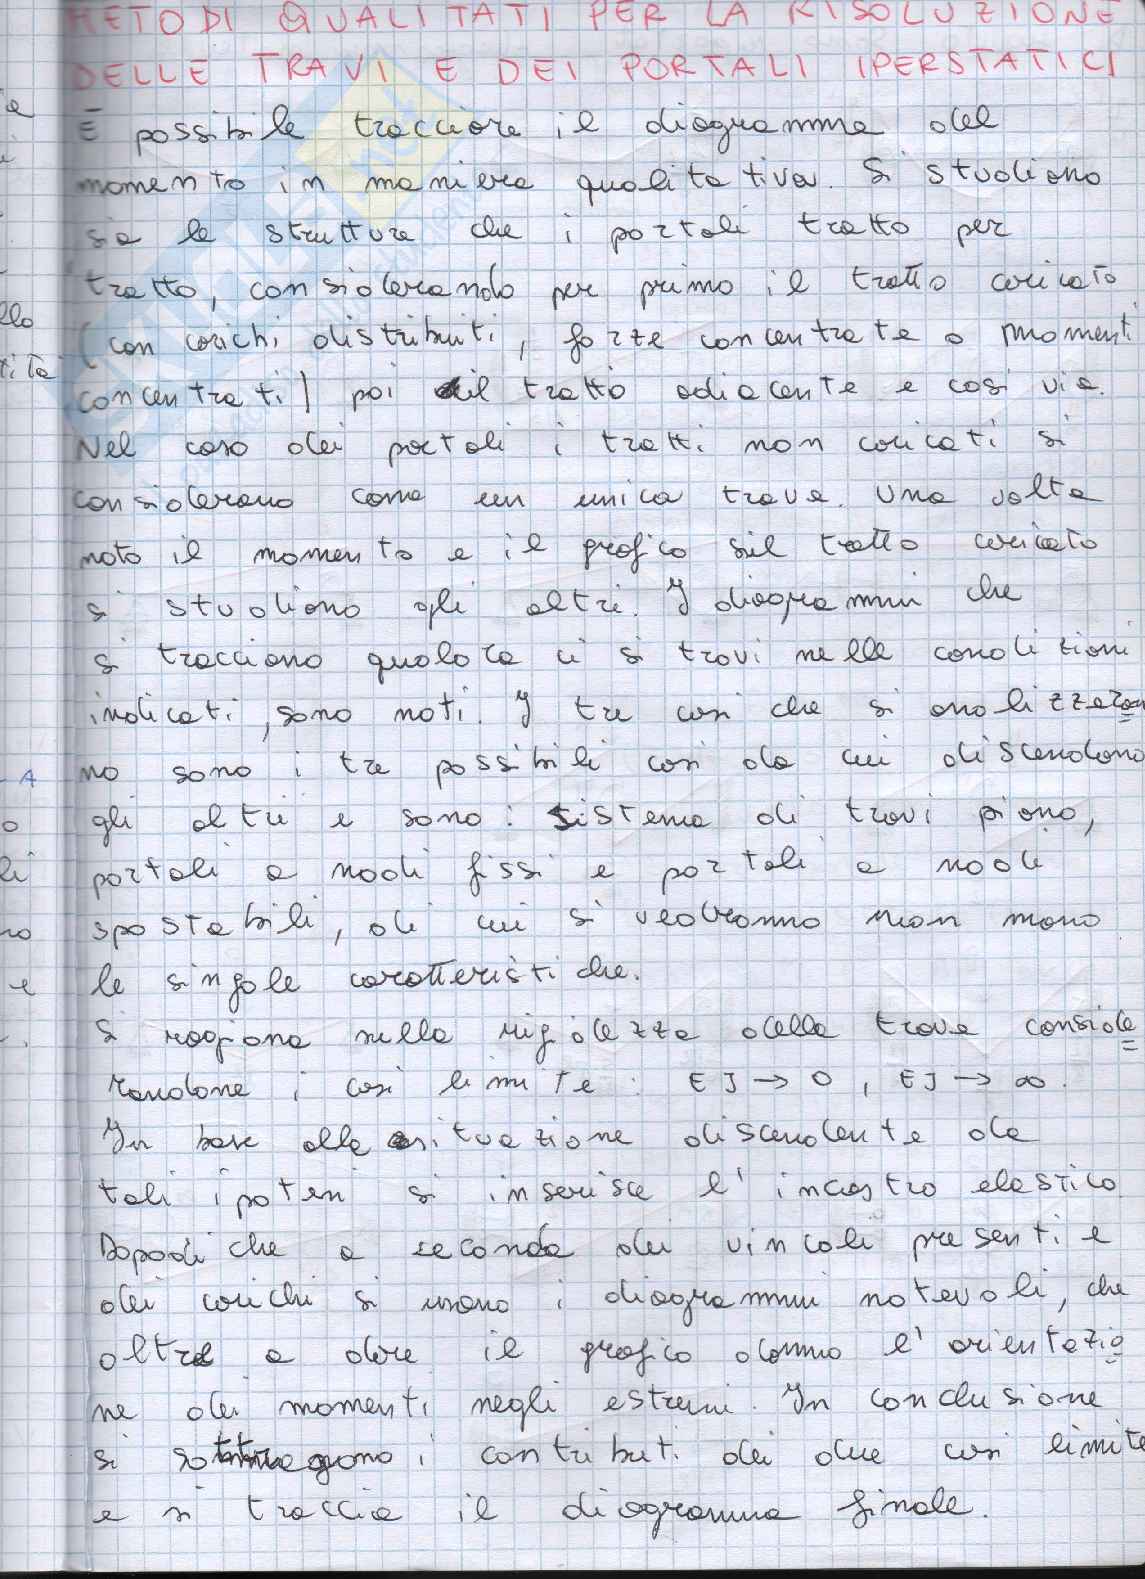 METODI QUALITATI PER LA RISOLUZIONE
DELLE TRAVI E DEI PORTALI IPERSTATICI
È possibile tracciare il diagramma del
momento in maniera qualitativa. Si studiano
sia le strutture che i portali tratto per
tratto, considerando per primo il tratto caricato
(con carichi distribuiti, forze concentrate o momenti
concentrati) poi il tratto adiacente e così via.
Nel caso dei portali i tratti non caricati si
considerano come un unica trave. Una volta
noto il momento e il grafico sul tratto caricato
si studiano gli altri. I diagrammi che
si tracciano qualora ci si trovi nelle condizioni
indicati, sono noti. I tre casi che si analizzeran
no sono i tre possibili casi da cui discendono
gli altri e sono: sistema di travi piano,
portali a nodi fissi e portali a nodi
spostabili, di cui si vedranno man mano
le singole caratteristiche.
Si ragiona sulla rigidezza della trave conside
randone i casi limite: EJ → 0, EJ → ∞.
In base alla situazione discendente da
tali ipotesi si inserisce l'incastro elastico
Dopodi che a seconda dei vincoli presenti e
dei carichi si usano i diagrammi notevoli, che
oltre a dare il grafico danno l'orientazio
ne dei momenti negli estremi. In conclusione
si sottraggono i contributi dei due casi limite
e si traccia il diagramma finale.